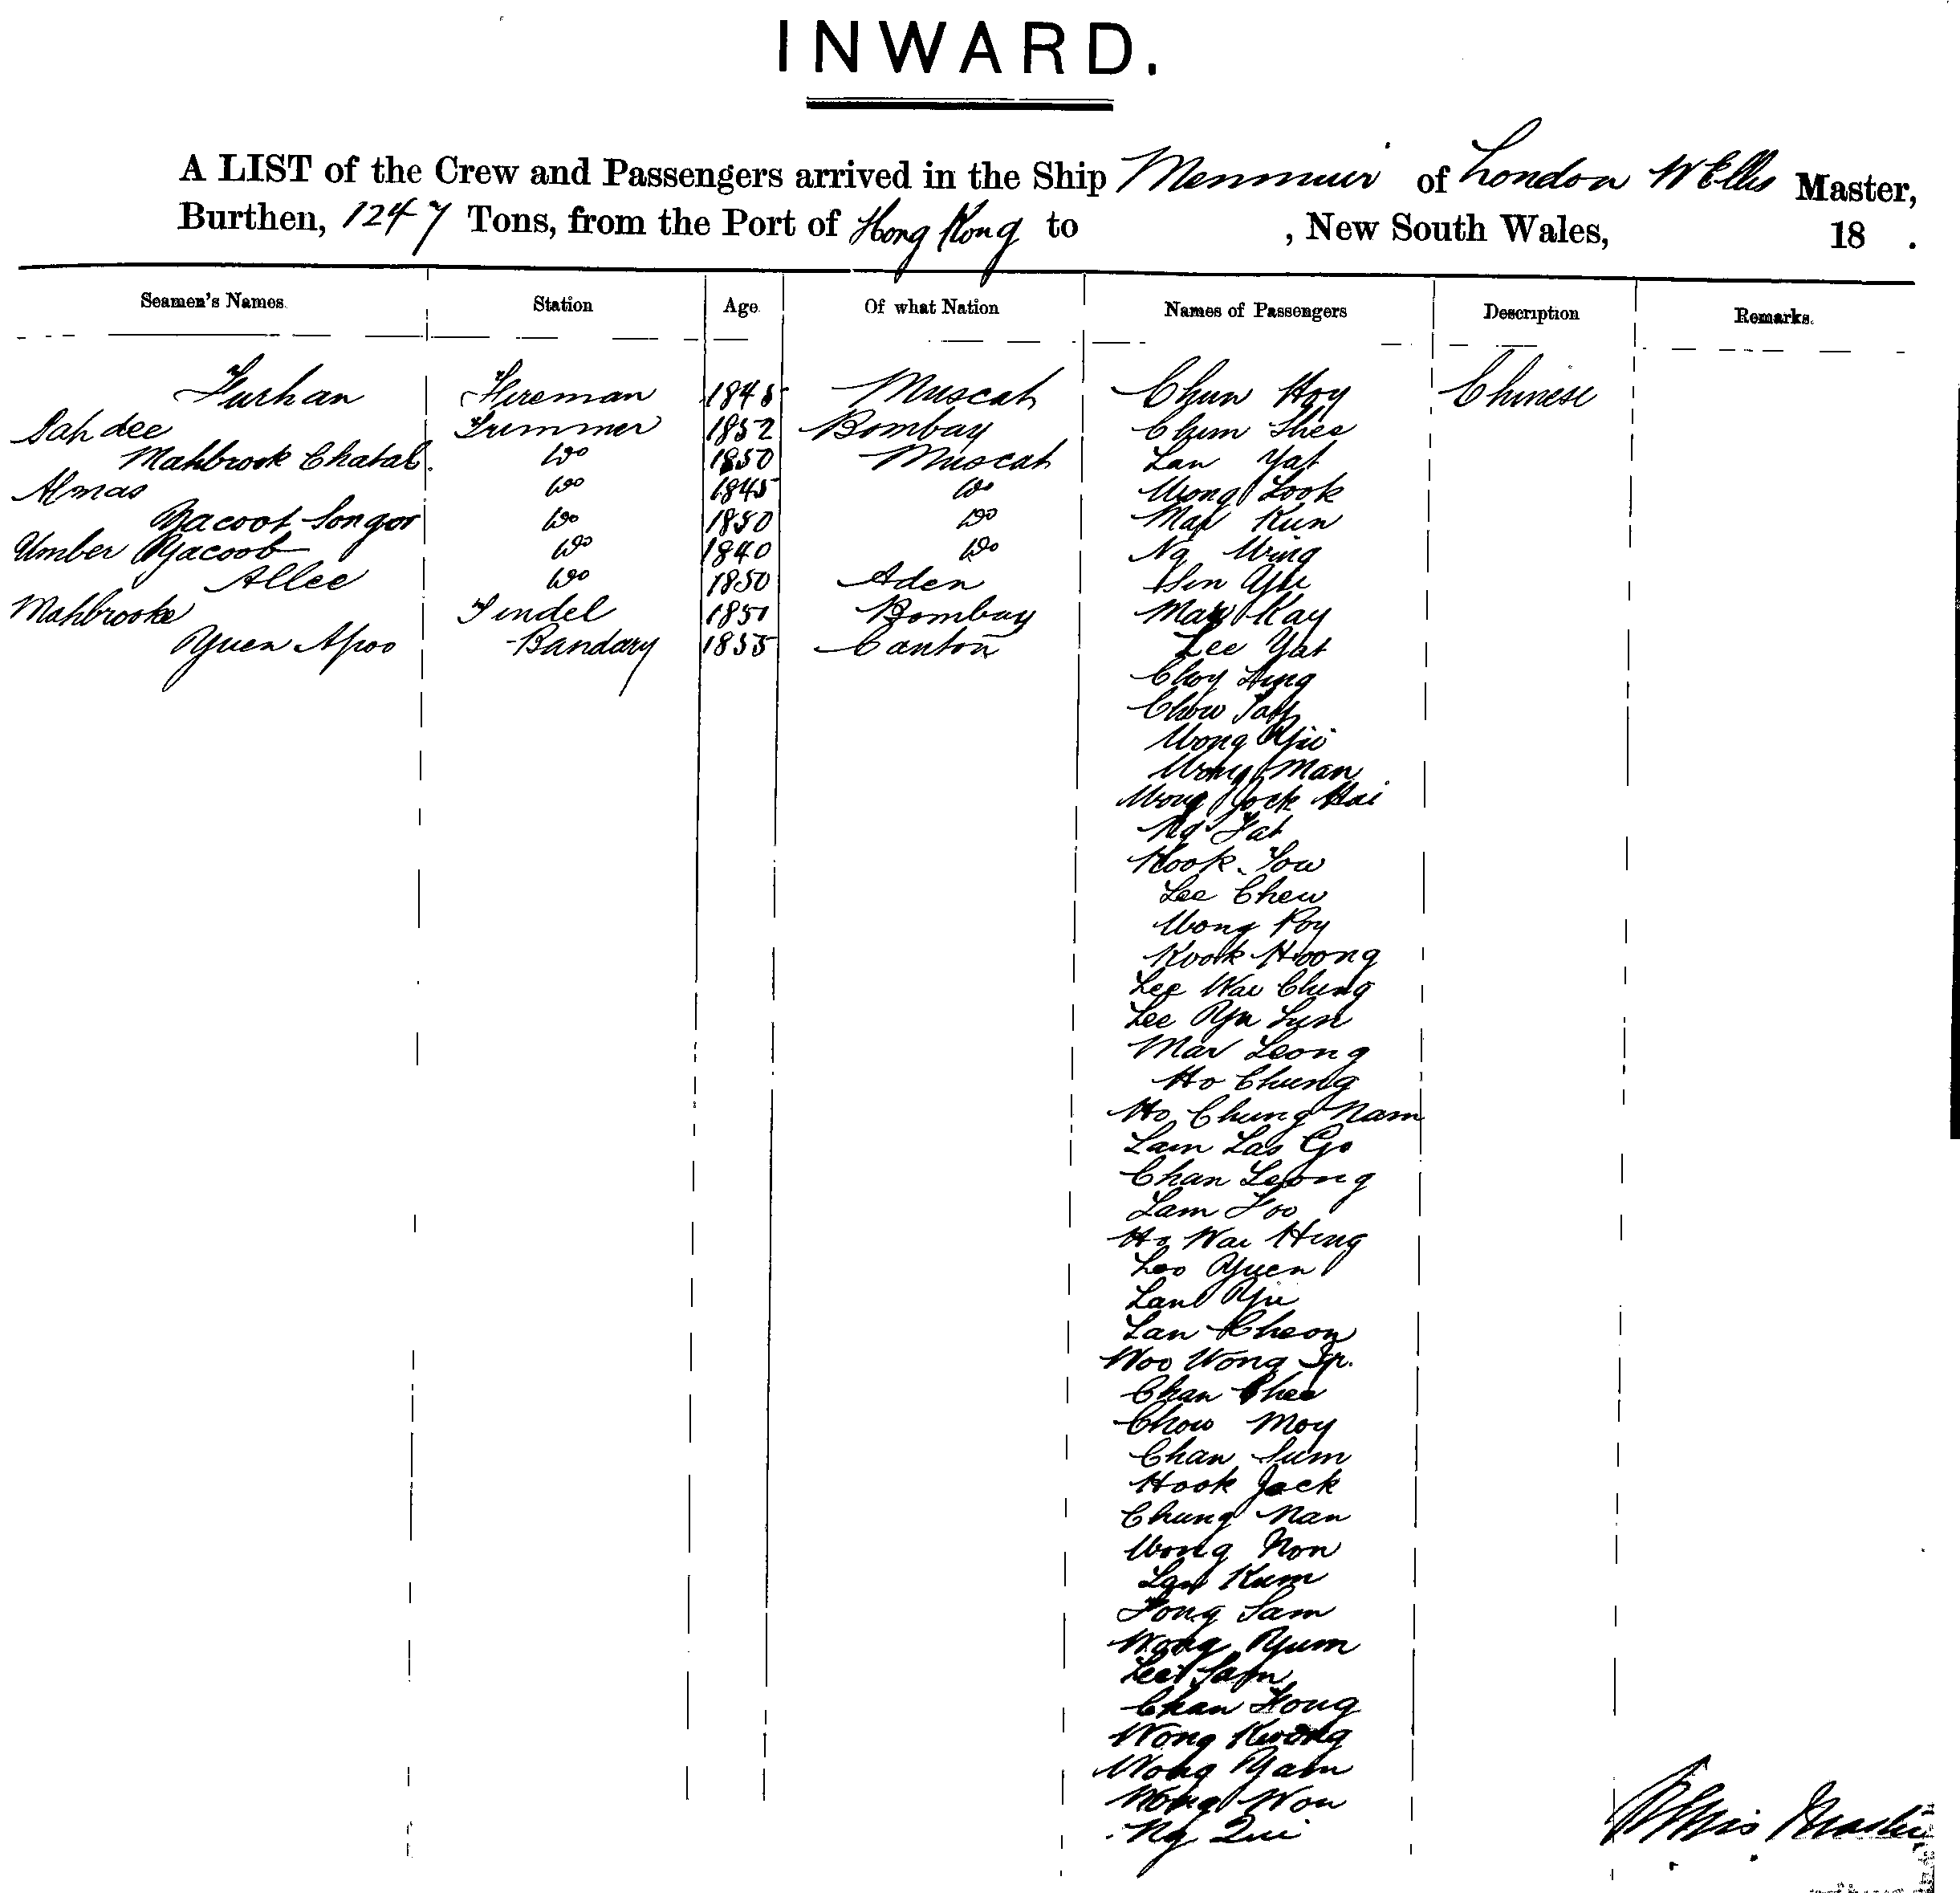 INWARD.
A LIST of the Crew and Passengers arrived in the Ship Menmuir of London W Ellis Master,
Burthen, 1247 Tons, from the Port of Hong Kong to , New South Wales, 18 .
Seamen's Names. Station Age Of what Nation Names of Passengers Description Remarks.
Furhan Fireman 1845 Muscat Chun Hoy Chinese
Sah dee Trimmer 1852 Bombay Chum Shee
Mahbrook Chatal. Do 1850 Muscat Lan Yat
Almas Do 1845 Do Wong Look
Yacoot Songor Do 1850 Do Mah Kun
Umber Yacoob Do 1840 Do Ng Wing
Allee Do 1850 Aden
Mahbrooke Tindel 1851 Bombay Mar Kay
Yuen Apoo Bandary 1855 Canton Lee Yat
Choy Hing
Chow
Wong Yii
Wong Man
Wong Jock Hai
Ng Fat
Hook You
Lee Chew
Wong Poy
Kook Hoong
Lee Wai Ching
Lee Lun
Mar Leong
Ho Chung
Ho Chung Nam
Lam Las Go
Chan Leong
Lam Foo
Ho Wai Hing
Loo Yuen
Lan
Lan Cheon
Woo Wong
Chan Chee
Chow Moy
Chan Sum
Hook Jack
Chung Nan
Wong Non
Lan Kum
Fong Sam
Wong Yum
Lee Sam
Chan Fong
Wong Kwong
Wong Yam
Wong Won
Ng Qui
Ellis Master